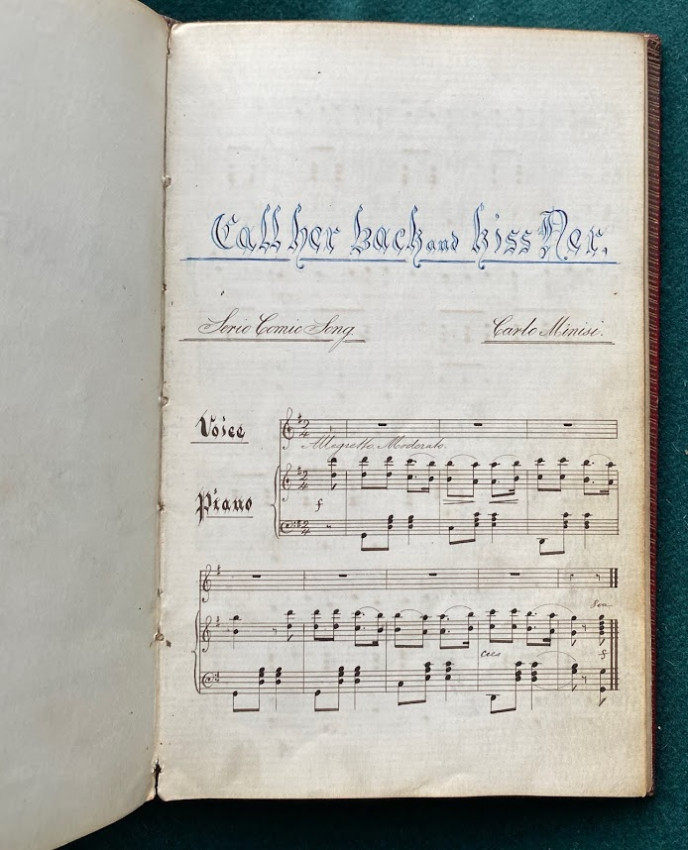 Call her back and kiss Her.
Serio Comic Song. Carlo Minisi.
Voice
Allegretto Moderato.
Piano
f
f